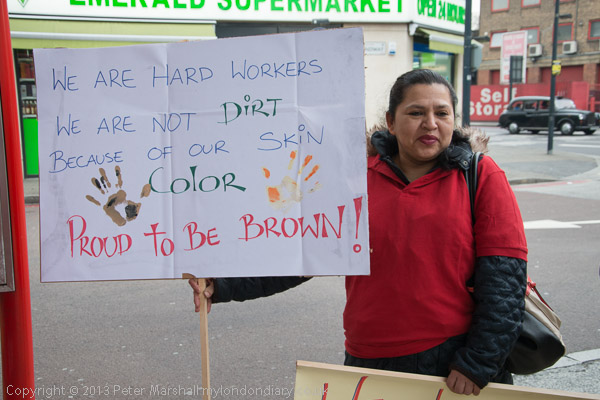 EMERALD SUPERMARKET
OPEN 24 HOURS
WE ARE HARD WORKERS
WE ARE NOT DIRT
BECAUSE OF OUR SKIN
COLOR
PROUD TO BE BROWN!
Self
Stor
Copyright © 2013 Peter Marshall mylondondiary